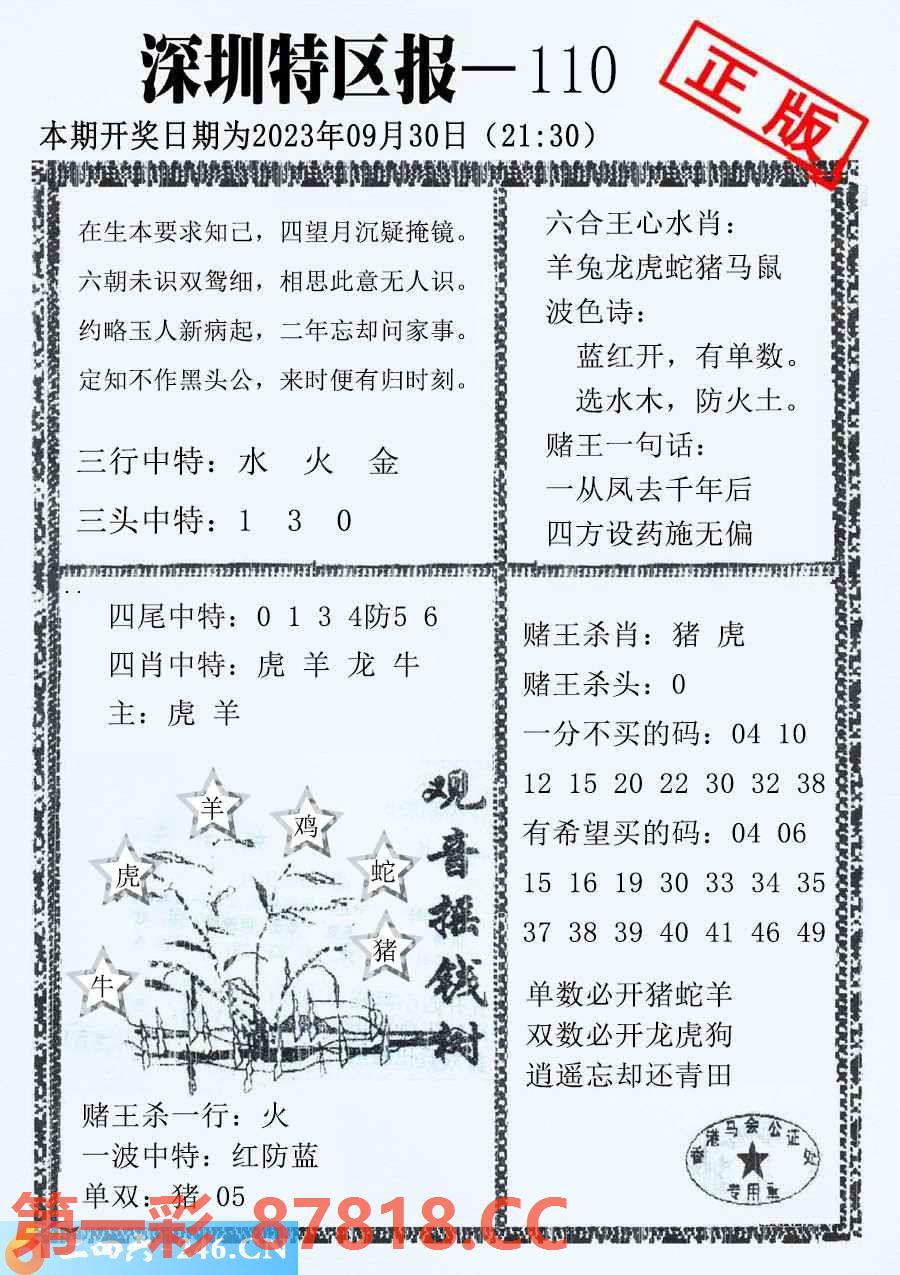 深圳特区报—110
正版
本期开奖日期为2023年09月30日（21:30）
在生本要求知己，四望月沉疑掩镜。
六朝未识双鸳细，相思此意无人识。
约略玉人新病起，二年忘却问家事。
定知不作黑头公，来时便有归时刻。
三行中特：水 火 金
三头中特：1 3 0
六合王心水肖：
羊兔龙虎蛇猪马鼠
波色诗：
蓝红开，有单数。
选水木，防火土。
赌王一句话：
一从凤去千年后
四方设药施无偏
四尾中特：0 1 3 4防5 6
四肖中特：虎 羊 龙 牛
主：虎 羊
羊
鸡
虎
蛇
猪
牛
观音摇钱树
赌王杀一行：火
一波中特：红防蓝
单双：猪 05
赌王杀肖：猪 虎
赌王杀头：0
一分不买的码：04 10
12 15 20 22 30 32 38
有希望买的码：04 06
15 16 19 30 33 34 35
37 38 39 40 41 46 49
单数必开猪蛇羊
双数必开龙虎狗
逍遥忘却还青田
香港马会公证处
专用章
第一彩 87818.CC
246.CN